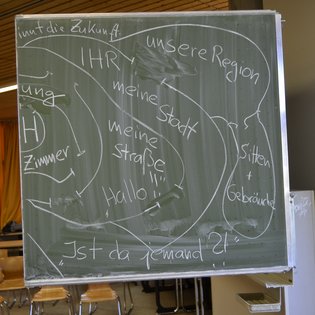 innt die Zukunft:
IHR
unsere Region
ung
meine Stadt
H)
meine
straße
Zimmer
Sitten
+
Gebräuche
Hallo!
"Ist da jemand?!"